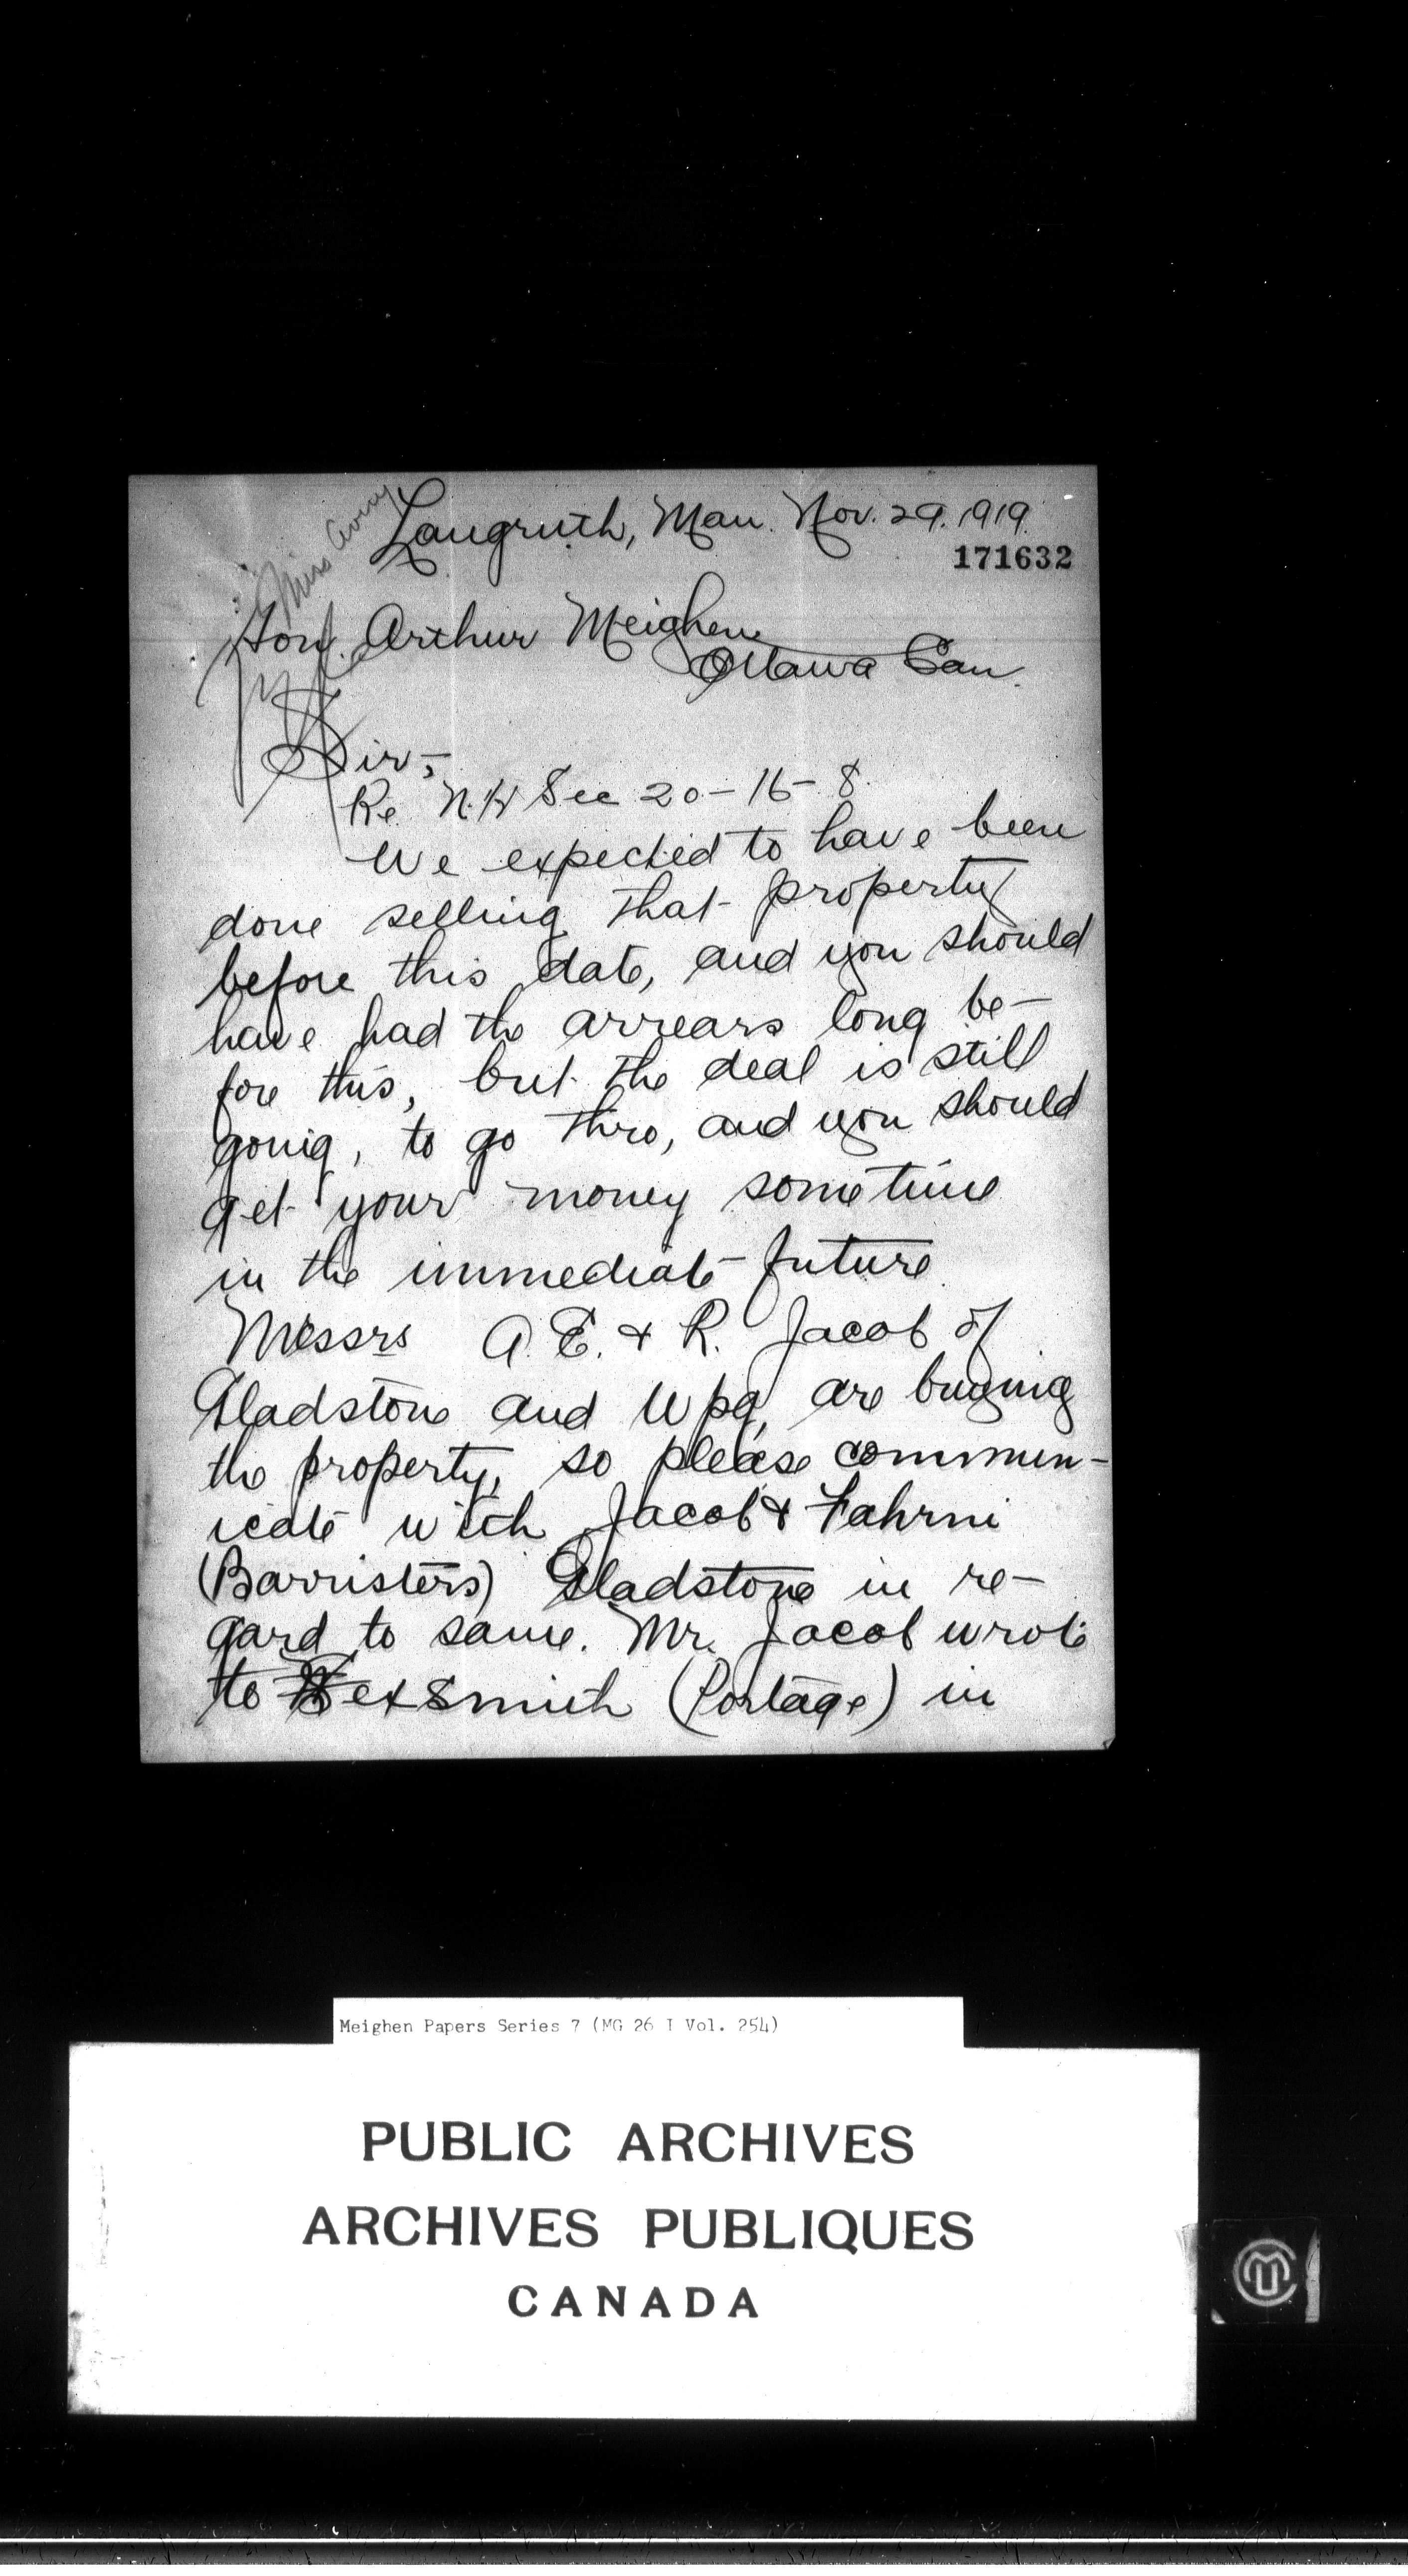 Miss Avery
Langruth, Man. Nov. 29. 1919.
171632
Hon. Arthur Meighen
Ottawa Can.
Sir,-
Re. N.W Sec 20-16-8.
We expected to have been
done selling that property
before this date, and you should
have had the arrears long be-
fore this, but the deal is still
going, to go thro, and you should
get your money sometime
in the immediate future.
Messrs A. E. & R. Jacob of
Gladstone and Wpg, are buying
the property, so please commun-
icate with Jacob & Fahrni
(Barristers) Gladstone in re-
gard to same. Mr. Jacob wrote
to Sexsmith (Portage) in
Meighen Papers Series 7 (MG 26 I Vol. 254)
PUBLIC ARCHIVES
ARCHIVES PUBLIQUES
CANADA